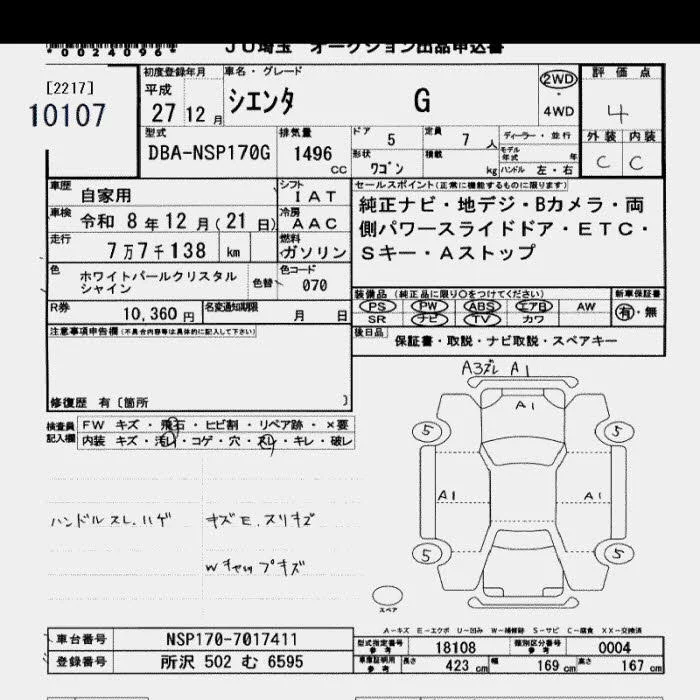 *0024096*
JU埼玉 オークション出品申込書
[2217]
10107
初度登録年月
平成
27 12 月
車名・グレード
シエンタ G
2WD
・
4WD
評価点
4
外装 内装
C C
型式
DBA-NSP170G
排気量
1496 CC
ドア 5
定員 7 人
形状 ワゴン
積載 kg
ディーラー・並行
モデル年式 年
ハンドル 左・右
車歴 自家用
シフト IAT
車検 令和 8 年 12 月 ( 21 日)
冷房 AAC
走行 7万7千138 km
燃料 ガソリン
色 ホワイトパールクリスタルシャイン
色替
色コード 070
R券 10,360 円
名変通知期限 月 日
セールスポイント(正常に機能するものに限ります)
純正ナビ・地デジ・Bカメラ・両
側パワースライドドア・ETC・
Sキー・Aストップ
装備品 (純正品に限り○をつけてください)
新車保証書
PS PW ABS エアB AW
SR ナビ TV カワ
有・無
後日品 保証書・取説・ナビ取説・スペアキー
注意事項申告欄(不具合内容等は具体的に記入して下さい)
修復歴 有〔箇所 〕
検査員記入欄
FW キズ・飛石・ヒビ割・リペア跡・×要
内装 キズ・汚レ・コゲ・穴・スレ・キレ・破レ
ハンドルスレ.ハゲ キズE.スリキズ
Wチャップキズ
A3ズレ A1
A1
5 5
A1 A1
5 5
スペア
A-キズ E-エクボ U-凹み W-補修跡 S-サビ C-腐食 XX-交換済
車台番号 NSP170-7017411
登録番号 所沢 502 む 6595
型式指定番号 参考 18108
類別区分番号 参考 0004
車庫証明用 参考 長さ 423 cm 幅 169 cm 高さ 167 cm